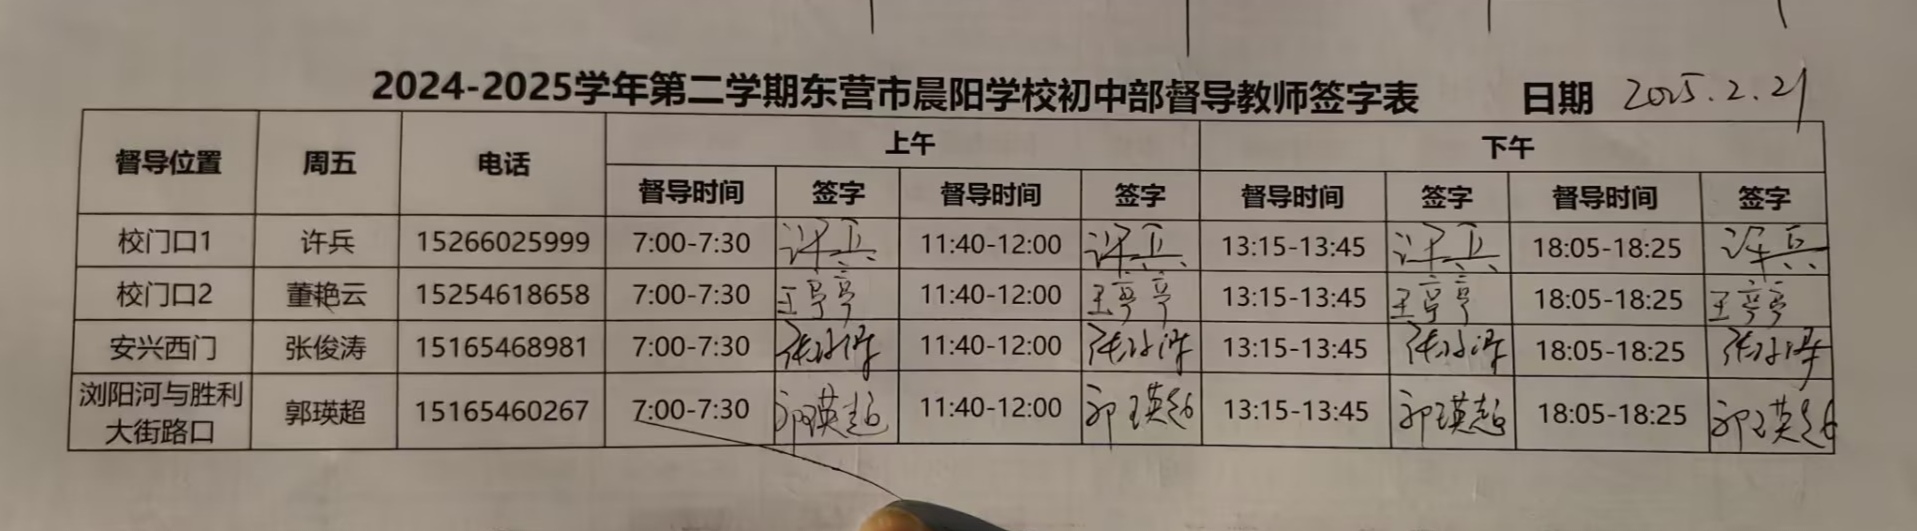 2024-2025学年第二学期东营市晨阳学校初中部督导教师签字表 日期 2025.2.21
督导位置 周五 电话 上午 下午
督导时间 签字 督导时间 签字 督导时间 签字 督导时间 签字
校门口1 许兵 15266025999 7:00-7:30 许兵 11:40-12:00 许兵 13:15-13:45 许兵 18:05-18:25 许兵
校门口2 董艳云 15254618658 7:00-7:30 王亭亭 11:40-12:00 王亭亭 13:15-13:45 王亭亭 18:05-18:25 王亭亭
安兴西门 张俊涛 15165468981 7:00-7:30 张俊涛 11:40-12:00 张俊涛 13:15-13:45 张俊涛 18:05-18:25 张俊涛
浏阳河与胜利
大街路口 郭瑛超 15165460267 7:00-7:30 郭瑛超 11:40-12:00 郭瑛超 13:15-13:45 郭瑛超 18:05-18:25 郭瑛超